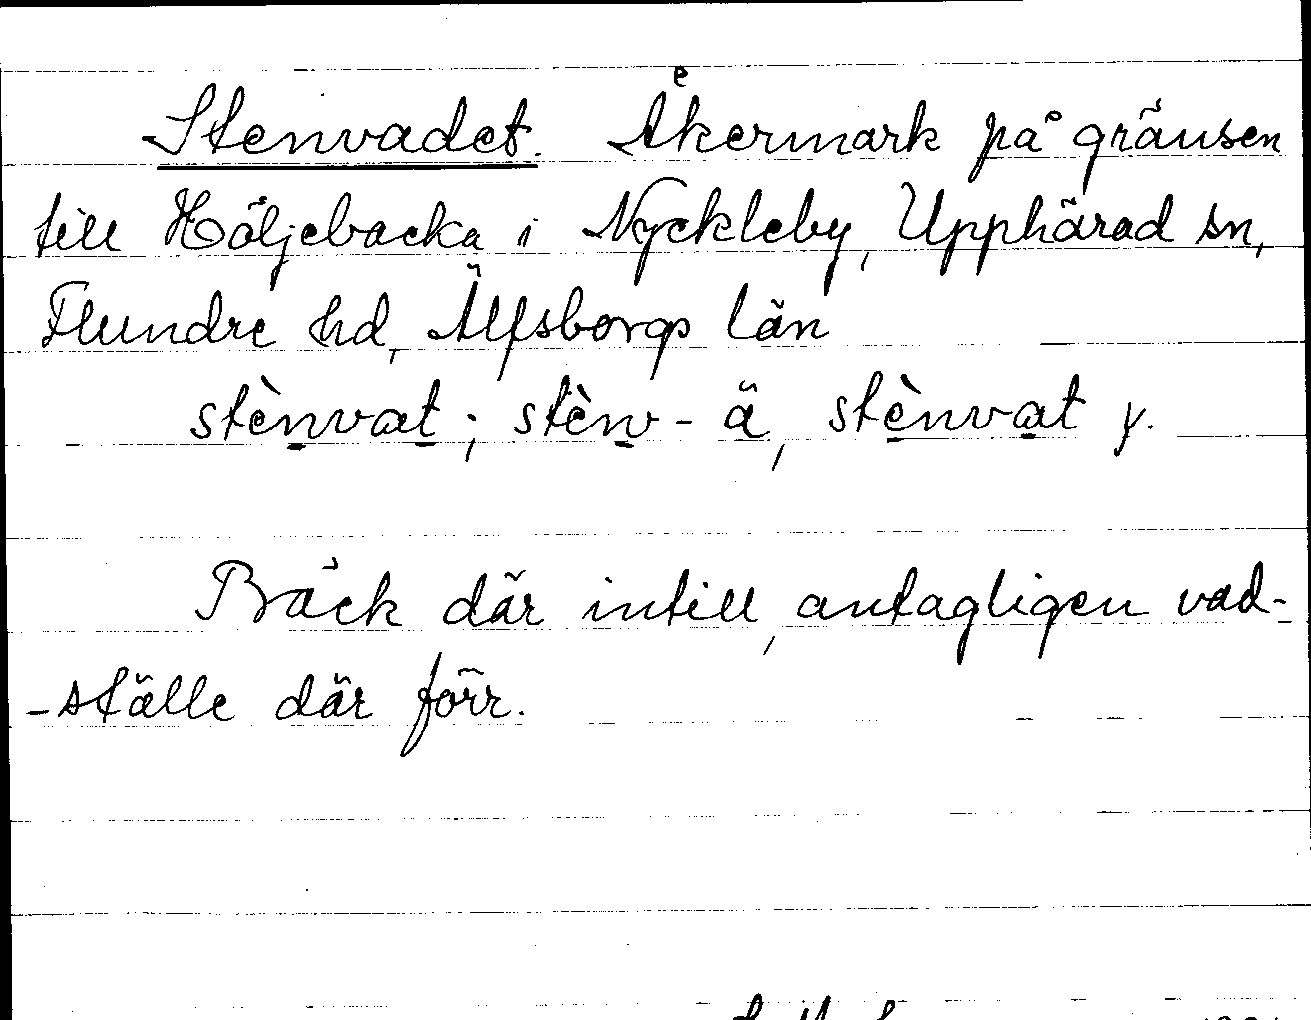 Stenvadet. Åkermark på gränsen
till Höljebacka i Nyckleby, Upphärad sn,
Flundre hd, Älfsborgs län
stènvat; stènv - ä, stènvat y.
Bäck där intill, antagligen vad-
-ställe där förr.